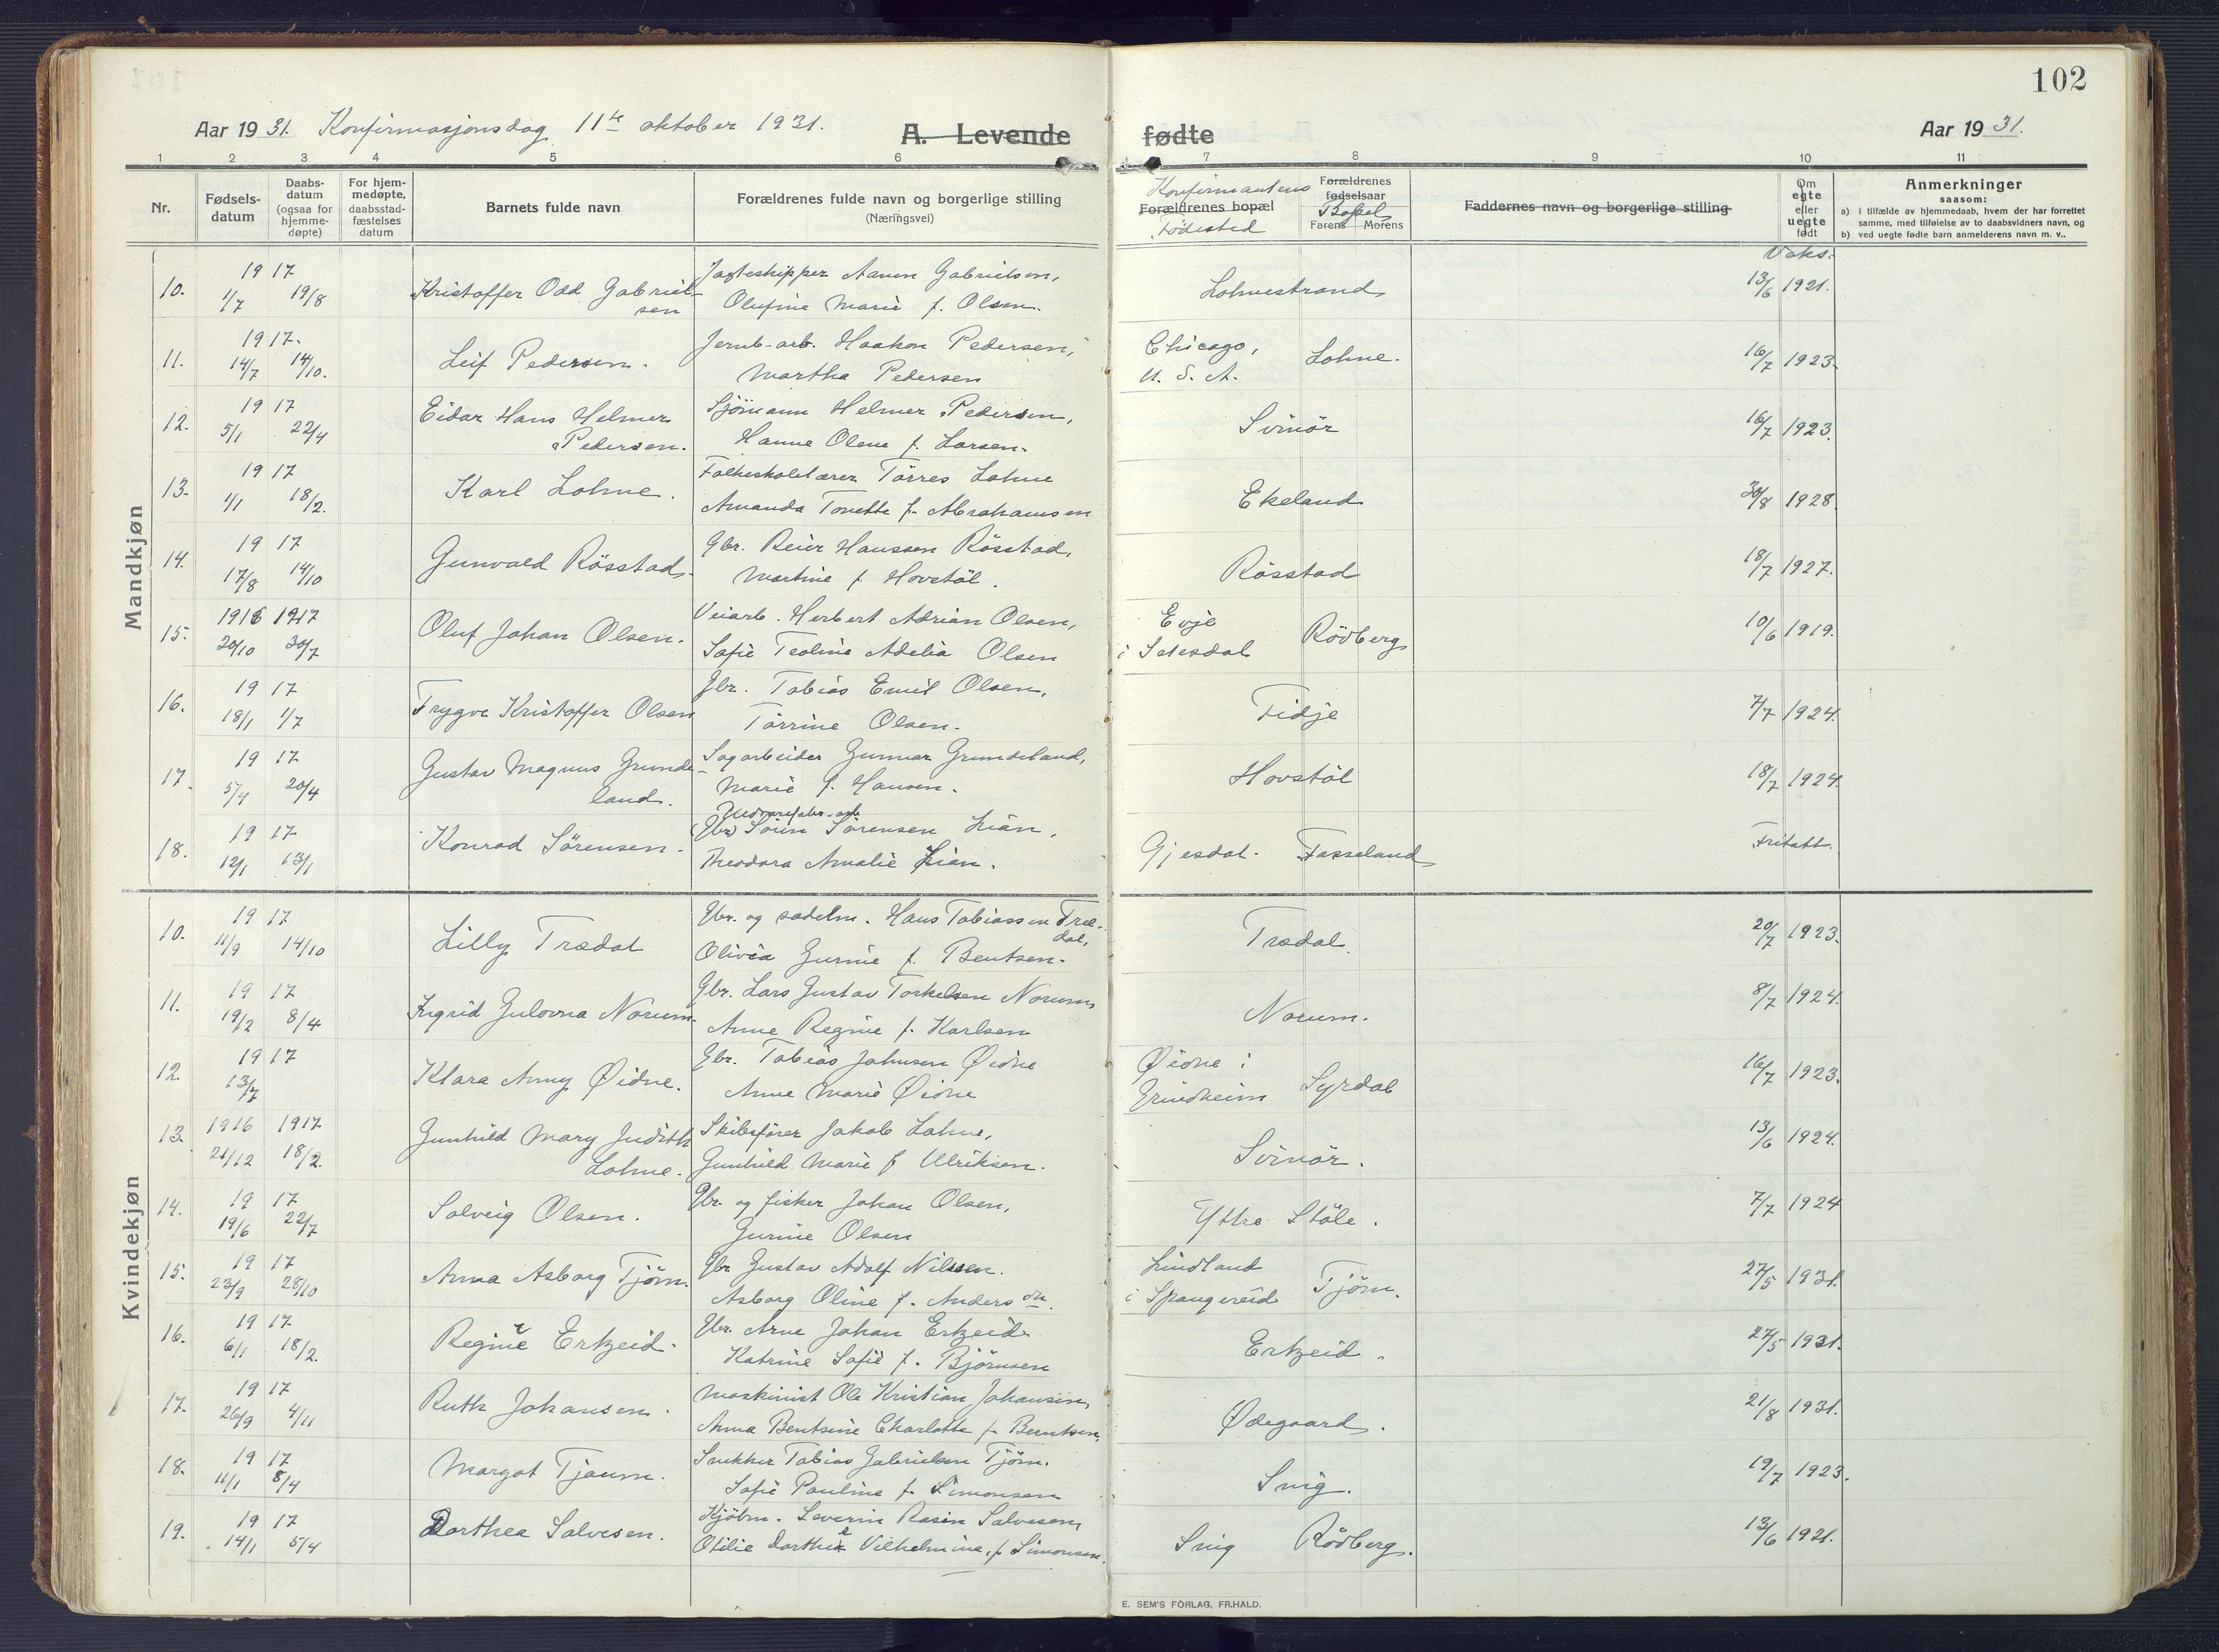 102
Aar 19 31. Konfirmasjonsdag 11te oktober 1931. A. Levende fødte Aar 19 31.
1 2 3 4 5 6 7 8 9 10 11
Nr. Fødsels-datum Daabs-datum (ogsaa for hjemme-døpte) For hjem-medøpte, daabsstad-fæstelses datum Barnets fulde navn Forældrenes fulde navn og borgerlige stilling (Næringsvei) Konfirmantens Forældrenes bopæl Fødested Forældrenes fødselsaar Bopel Farens Morens Faddernes navn og borgerlige stilling Om egte eller uegte født Anmerkninger saasom:
a) i tilfælde av hjemmedaab, hvem der har forrettet samme, med tilføielse av to daabsvidners navn, og
b) ved uegte fødte barn anmelderens navn m. v..
Vaks.
Mandkjøn
10. 19 17 Kristoffer Odd Gabriel- Jagteskipper Aanen Gabrielsen, Lohnestrand 13/6 1921.
1/7 19/8 sen Olufine Marie f. Olsen.
11. 1917. Leif Pedersen. Jernb-arb. Haakon Pedersen, Chicago, Lohne. 16/7 1923.
14/7 14/10. Martha Pedersen U. S. A.
12. 19 17 Eidar Hans Helmer Sjömann Helmer Pedersen, Svinör 16/7 1923.
5/1 22/4 Pedersen. Hanne Olene f. Larsen.
13. 19 17 Karl Lohne. Folkeskolelærer Törres Lohne Ekeland 30/8 1928.
1/1 18/2. Amanda Tonette f. Abrahamsen
14. 19 17 Gunvald Rösstad. Gbr. Reier Hanssen Rösstad, Rösstad 18/7 1927.
17/8 14/10 Martine f. Hovstöl.
15. 1916 1917 Oluf Johan Olsen. Veiarb. Herbert Adrian Olsen, Evje Rödberg 10/6 1919.
20/10 30/7 Sofie Teoline Adelia Olsen i Setesdal
16. 19 17 Trygve Kristoffer Olsen Gbr. Tobias Emil Olsen, Tidje 7/7 1924.
18/1 1/7 Törrine Olsen.
17. 19 17 Gustav Magnus Grunde- Sagarbeider Gunnar Grundeland, Hovstöl 18/7 1924.
5/4 20/4 land. Marie f. Hansen.
18. 19 17 Konrad Sörensen. (Gbr) Sörin Sörensen Lian, Gjesdal. Fasseland Fritatt.
12/1 13/1 Theodora Amalie Lian.
Kvindekjøn
10. 19 17 Lilly Trædal Gbr. og sadelm. Hans Tobiassen Træ-dal, Trædal. 20/7 1923.
11/9 14/10 Olivia Gurine f. Bentsen.
11. 19 17 Ingrid Gulovna Norum. Gbr. Lars Gustav Torkelsen Norum, Norum. 8/7 1924.
19/2 8/4 Anne Regine f. Karlsen
12. 19 17 Klara Anny Øidne. Gbr. Tobias Johnsen Øidne Øidne i Syrdal 16/7 1923.
13/7 Anne Marie Øidne Grindheim
13. 1916 1917 Gunhild Mary Judith Skibsfører Jakob Lohne, Svinör. 13/6 1924.
21/12 18/2. Lohne. Gunhild Marie f Ulriksen.
14. 19 17 Solveig Olsen. Gbr. og fisker Johan Olsen, Yttre Stöle. 7/7 1924
19/6 22/7 Gurine Olsen
15. 19 17 Anna Asborg Tjörn. Gbr Gustav Adolf Nilssen. Lindland Tjörn. 27/5 1931.
23/9 28/10 Asborg Oline f. Andersdn. i Spangereid
16. 19 17 Regine Erkzeid. Gbr. Arne Johan Erkzeid. Erkzeid. 27/5 1931.
6/1 18/2. Katrine Sofie f. Björnsen
17. 19 17 Ruth Johansen. Maskinist Ole Kristian Johansen, Ødegaard. 21/8 1931.
26/9 4/11 Anna Bentsine Charlotte f. Berntsen,
18. 19 17 Margot Tjaum. Snekker Tobias Gabrielsen Tjörn. Snig. 19/7 1923.
11/1 8/4 Sofie Pauline f. Simonsen
19. 19 17 Dorthea Salvesen. Kjöbm. Severin Rasin Salvesen, Snig Rödberg. 13/6 1921.
14/1 5/4 Otilie Dorthe Vilhelmine, f. Simonsen.
E. SEM'S FORLAG, FR.HALD.